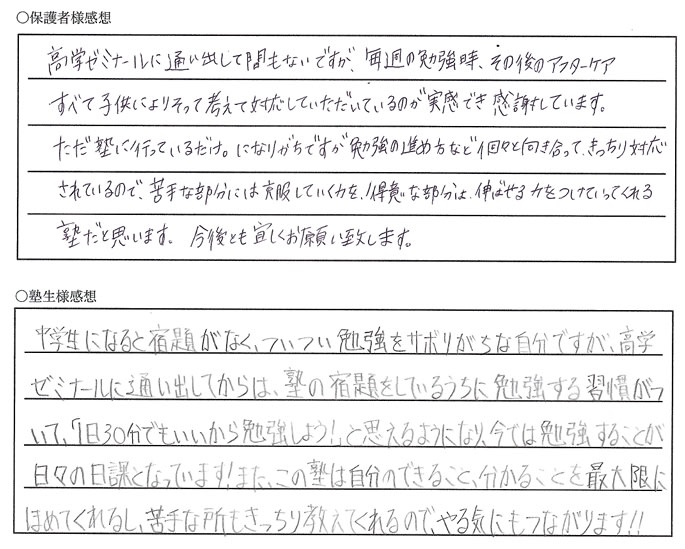 ○保護者様感想
高学ゼミナールに通い出して間もないですが、毎週の勉強時、その後のアフターケア
すべて子供によりそって考えて対応していただいているのが実感でき感謝しています。
ただ塾に行っているだけ。になりがちですが勉強の進め方など個々と向き合って、きっちり対応
されているので、苦手な部分には克服していく力を、得意な部分は、伸ばせる力をつけていってくれる
塾だと思います。今後とも宜しくお願い致します。
○塾生様感想
中学生になると宿題がなく、ついつい勉強をサボりがちな自分ですが、高学
ゼミナールに通い出してからは、塾の宿題をしているうちに勉強する習慣がつ
いて、「1日30分でもいいから勉強しよう!」と思えるようになり、今では勉強することが
日々の日課となっています!また、この塾は自分のできること、分かることを最大限に
ほめてくれるし、苦手な所もきっちり教えてくれるので、やる気にもつながります!!